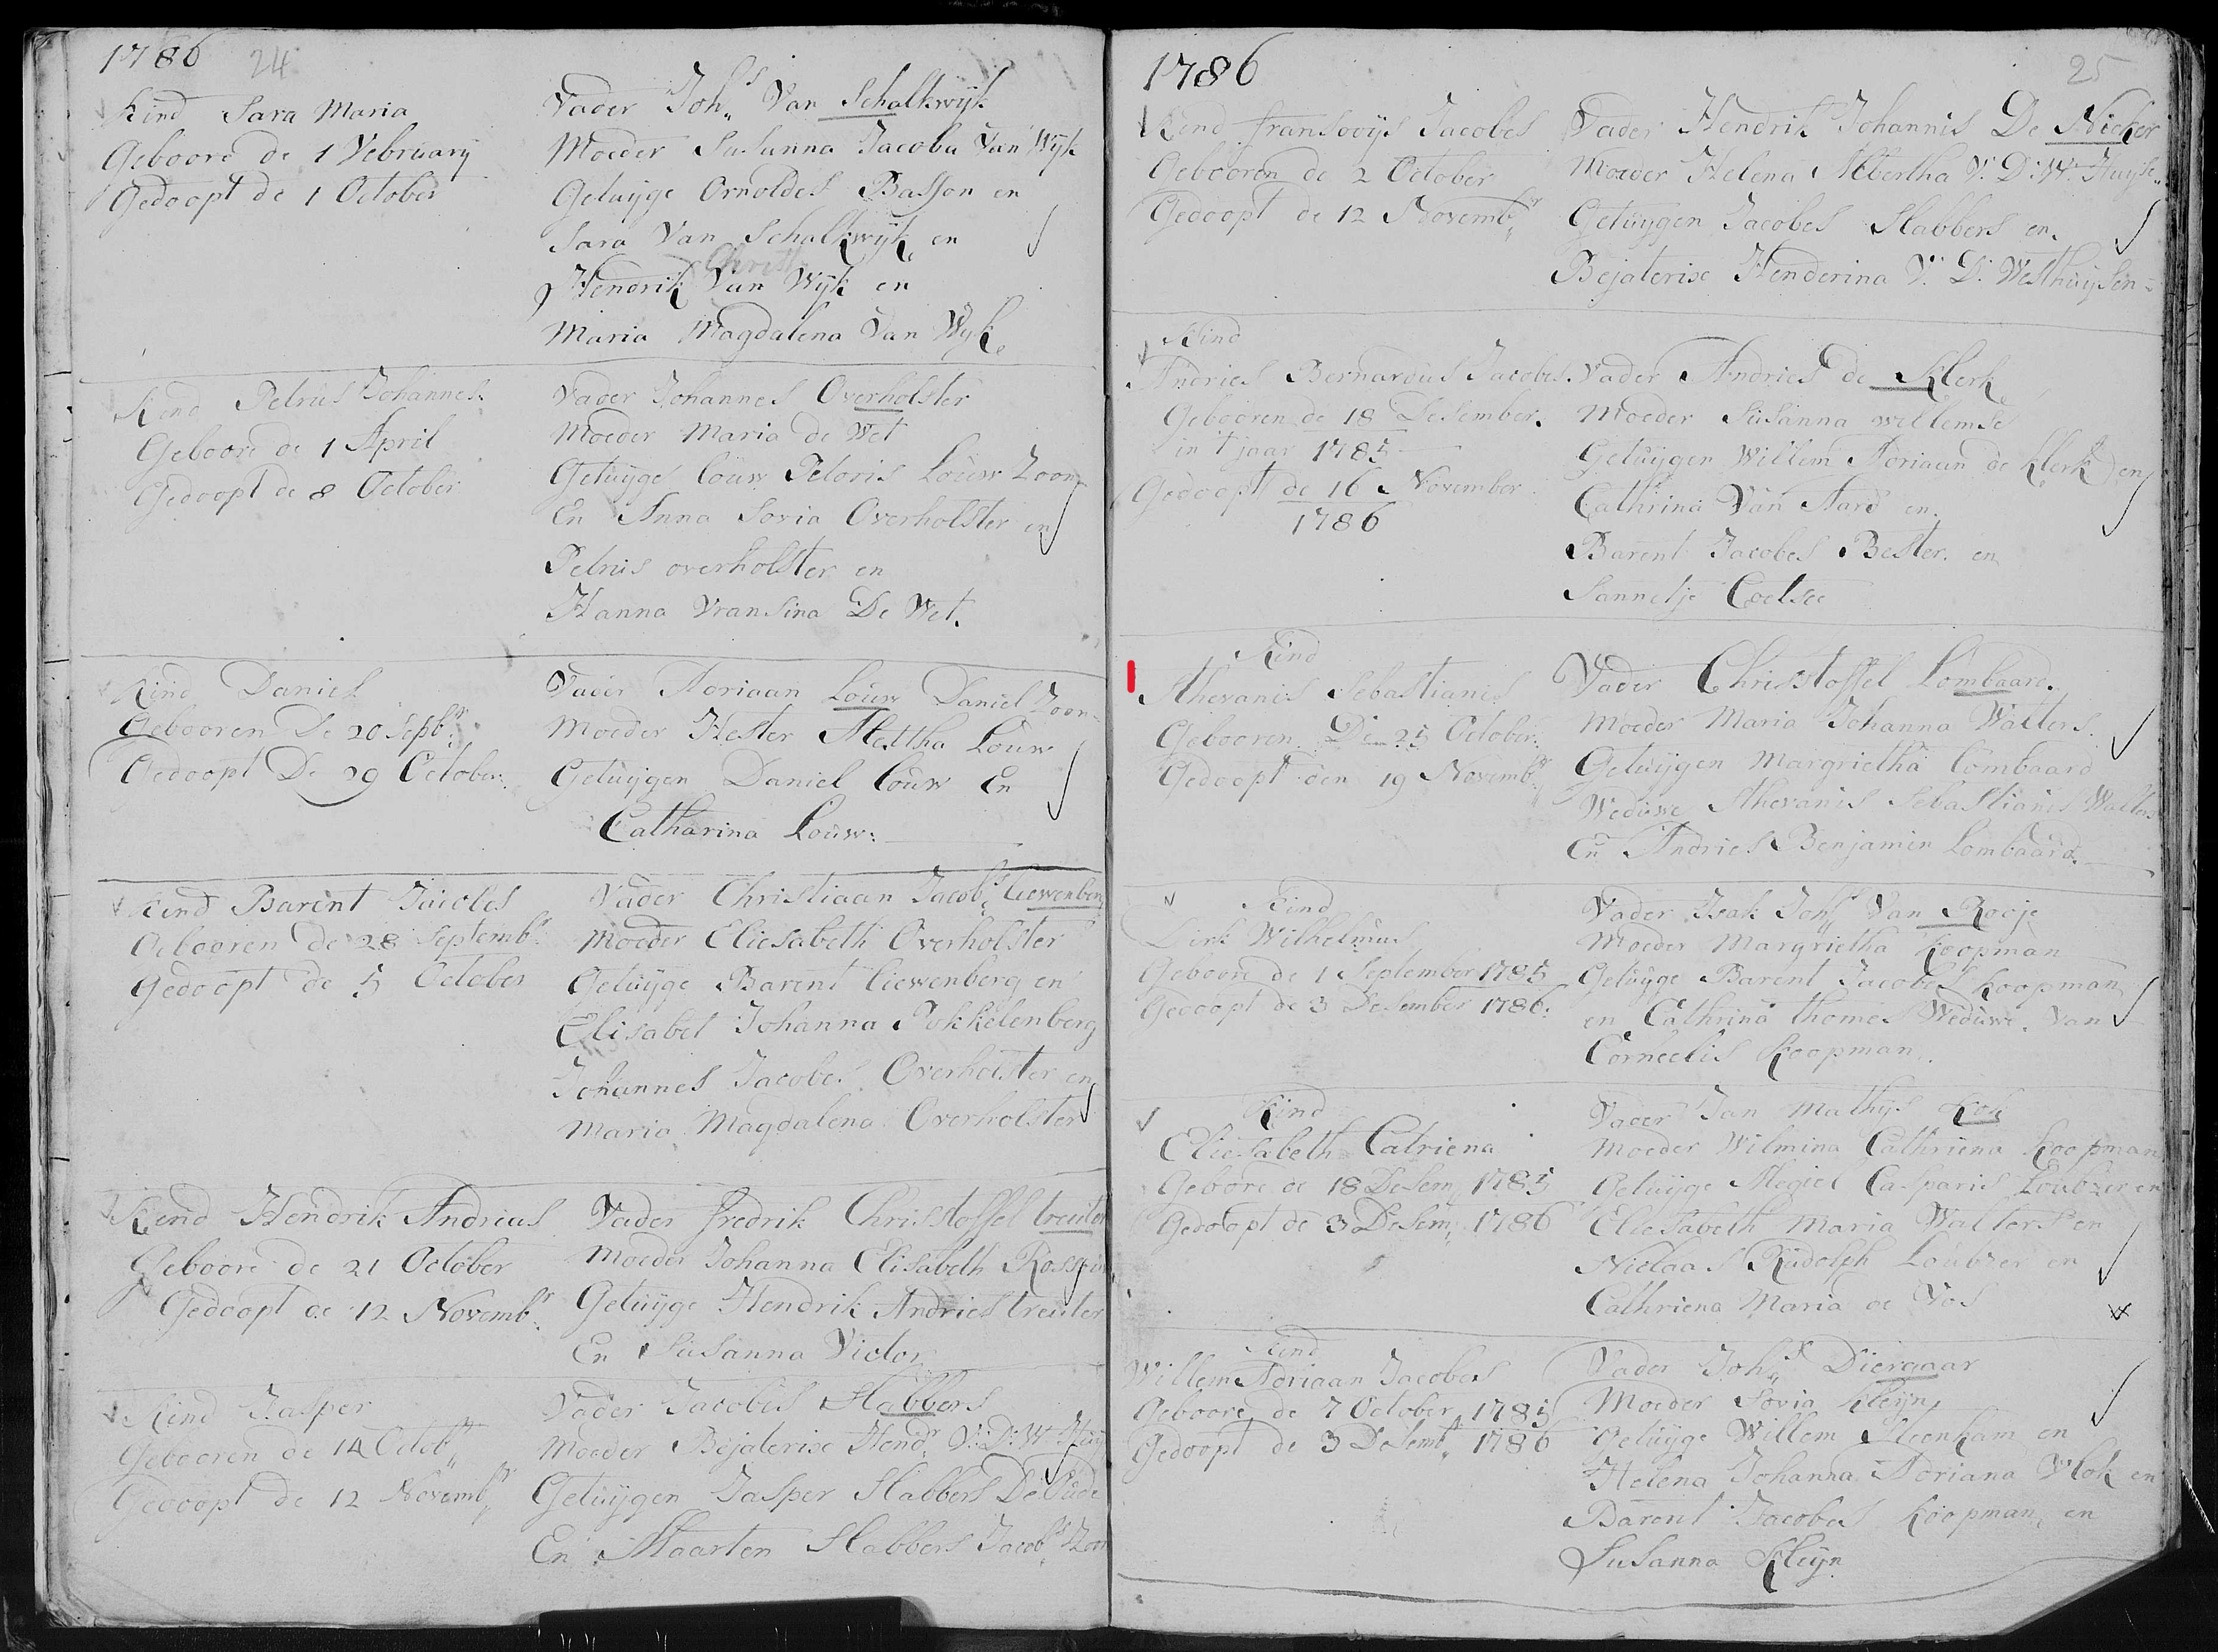 1786 24
Kind Sara Maria
Geboore de 1 Vebruarij
Gedoopt de 1 October
Vader Johs Van Schalkwijk
Moeder Susanna Jacoba Van Wijk
Getuijge Arnoldes Basson en
Sara Van Schalkwijk en
Christ
Hendrik Van Wijk en
Maria Magdalena Van Wijk
Kind Petrus Johannes
Geboore de 1 April
Gedoopt de 8 October
Vader Johannes Overholster
Moeder Maria de Wet
Getuijge Louw Petoris Louw Zoon
En Anna Sovia Overholster en
Petrus overholster en
Hanna Vransina De Wet.
Kind Daniel
Gebooren De 20 Sepbr
Gedoopt De 29 October
Vader Adriaan Louw Daniel Zoon
Moeder Hester Alettha Louw
Getuijgen Daniel Louw En
Catharina Louw
Kind Barent Jacobes
Gebooren de 28 Septembr
Gedoopt de 5 October
Vader Christiaan Jacobs Liewenberg
Moeder Eliesabeth Overholster
Getuijge Barent Liewenberg en
Elisabet Johanna Pokkelenberg
Johannes Jacobes Overholster en
Maria Magdalena Overholster
Kind Hendrik Andreas
Geboore de 21 October
Gedoopt de 12 Novembr
Vader fredrik Christoffel treuter
Moeder Johanna Elisabeth
Getuijge Hendrik Andries treuter
En Susanna Victor
Kind Jasper
Gebooren de 14 Octobr
Gedoopt de 12 Novembr
Vader Jacobes Slabbers
Moeder Bejaterise Hendr V: D: W: Huij
Getuijgen Jasper Slabbers De Oude
En Maarten Slabbers Jacobs Zoon
1786 25
Kind fransooijs Jacobes
Gebooren de 2 October
Gedoopt de 12 Novembr
Vader Hendrik Johannis De Nicker
Moeder Helena Albertha V: D: W: Huijse
Getuijgen Jacobes Slabbers en
Bejaterise Henderina V: D: Westhuijsen
Kind
Andries Bernardus Jacobes
Gebooren de 18 Desember
in t jaar 1785
Gedoopt de 16 November
1786
Vader Andries de Klerk
Moeder Susanna willemse
Getuijgen Willem Adriaan de Klerk en
Cathrina Van Aard en
Barent Jacobes Bester en
Sannetje Coetsee
Kind
Sthevanis Sebastianis
Gebooren De 25 October
Gedoopt den 19 Novembr
Vader Christoffel Lombaard
Moeder Maria Johanna Walters
Getuijgen Margrietha Lombaard
Weduwe Sthevanis Sebastianis Walters
En Andries Benjamin Lombaard
Kind
Dirk Wilhelmus
Geboore de 1 September 1785
Gedoopt de 3 Desember 1786
Vader Isak Johs Van Rooje
Moeder Margrietha Koopman
Getuijge Barent Jacobes Koopman
en Cathrina thomes Weduwe Van
Corneelis Koopman
Kind
Eliesabeth Catriena
Gebore de 18 Desem 1785
Gedoopt de 3 Desem 1786
Vader Jan Mathijs Kok
Moeder Wilmina Cathriena Koopman
Getuijge Megiel Casparis Loubzer en
Eliesabeth Maria Walters en
Niclaas Rudolph Loubzer en
Cathriena Maria de Vos
Kind
Willem Adriaan Jacobes
Geboore de 7 October 1785
Gedoopt de 3 Desembr 1786
Vader Johs Diergaar
Moeder Sovia Kleijn
Getuijge Willem Steenkam en
Helena Johanna Adriana Vlok en
Barent Jacobes Koopman en
Susanna Kleijn